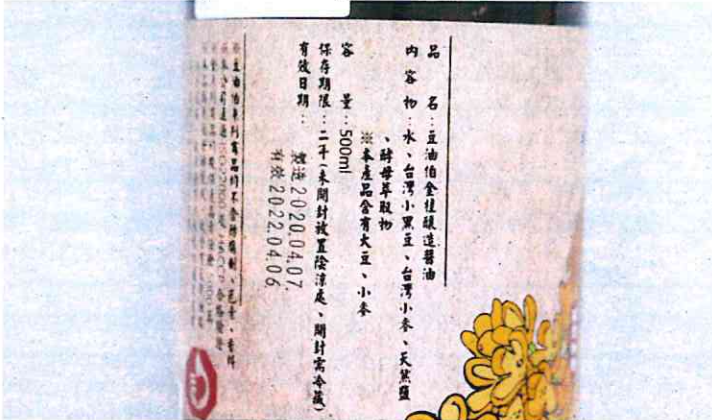 品　名：豆油伯金桂釀造醬油
內 容 物：水、台灣小黑豆、台灣小麥、天然鹽
、酵母萃取物
※本產品含有大豆、小麥
容　量：500ml
保存期限：二年(未開封放置陰涼處、開封需冷藏)
有效日期：
製造2020.04.07.
有效2022.04.06
※豆油伯系列商品均不含防腐劑、色素、香料